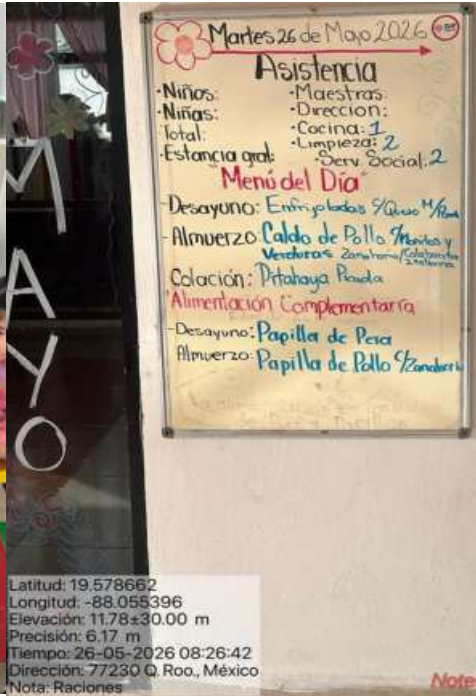 Martes 26 de Mayo 2026
Asistencia
·Niños:
·Niñas:
Total:
·Estancia gral:
·Maestras:
·Direccion:
·Cocina: 1
·Limpieza: 2
·Serv Social: 2
"Menú del Día"
-Desayuno: Enfrijoladas c/Queso
-Almuerzo: Caldo de Pollo
Verduras Zanahoria/Calabacita
Colación: Pitahaya Picada
"Alimentación Complementaria
-Desayuno: Papilla de Pera
Almuerzo: Papilla de Pollo c/Zanahoria
MAYO
Latitud: 19.578662
Longitud: -88.055396
Elevación: 11.78±30.00 m
Precisión: 6.17 m
Tiempo: 26-05-2026 08:26:42
Dirección: 77230 Q. Roo., México
Nota: Raciones
Note